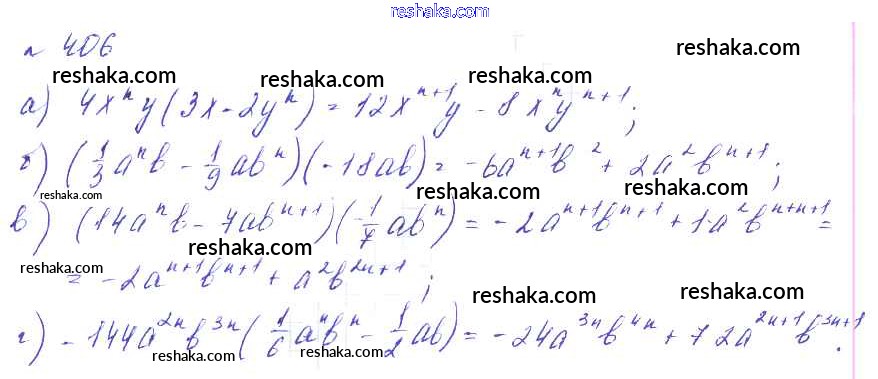 reshaka.com
№ 406
reshaka.com
reshaka.com reshaka.com reshaka.com
а) 4xⁿy(3x - 2yⁿ) = 12xⁿ⁺¹y - 8xⁿyⁿ⁺¹;
б) (1/3 aⁿb - 1/9 abⁿ)(-18ab) = -6aⁿ⁺¹b² + 2a²bⁿ⁺¹;
reshaka.com reshaka.com reshaka.com
в) (14aⁿb - 7abⁿ⁺¹)(-1/7 abⁿ) = -2aⁿ⁺¹bⁿ⁺¹ + 1·a²bⁿ⁺ⁿ⁺¹ =
reshaka.com reshaka.com
reshaka.com
= -2aⁿ⁺¹bⁿ⁺¹ + a²b²ⁿ⁺¹;
reshaka.com reshaka.com
г) -144a²ⁿb³ⁿ(1/6 aⁿbⁿ - 1/2 ab) = -24a³ⁿb⁴ⁿ + 72a²ⁿ⁺¹b³ⁿ⁺¹.
reshaka.com reshaka.com reshaka.com